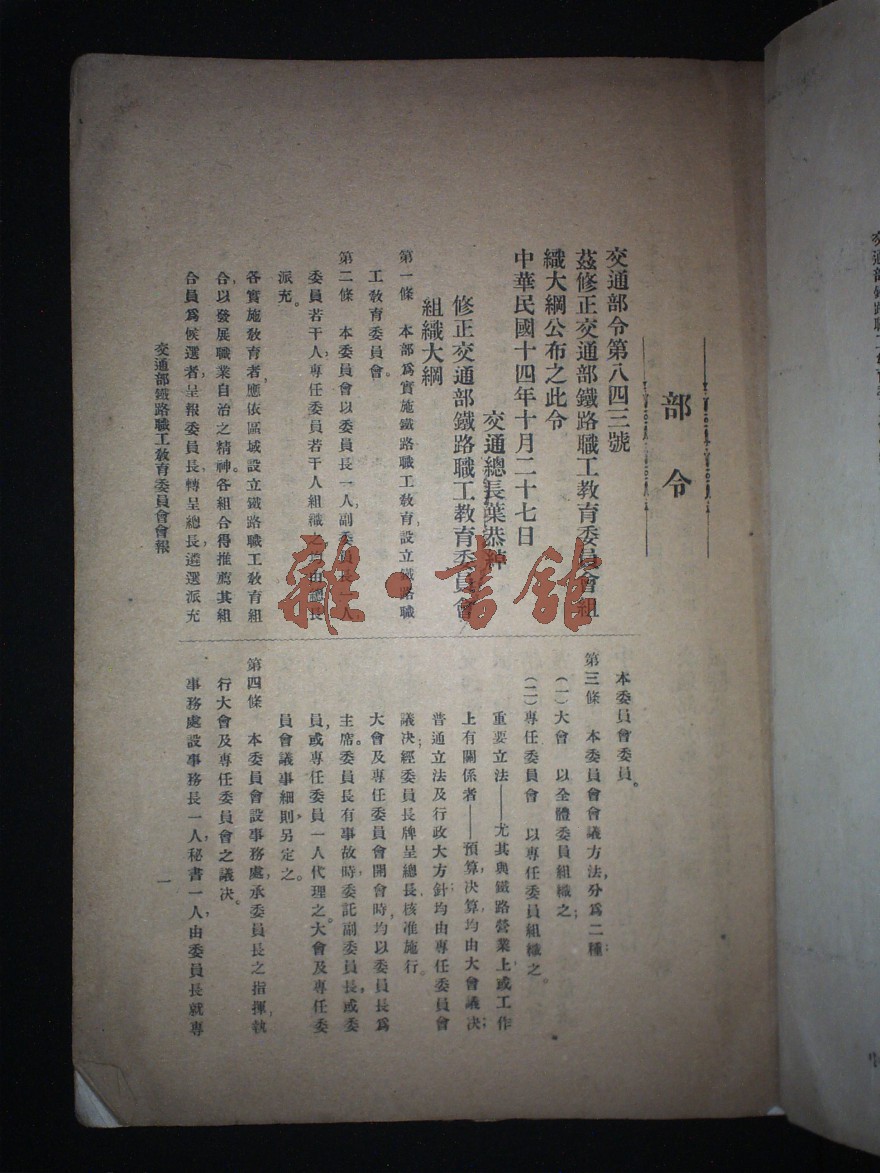 部令
交通部令第八四三號
茲修正交通部鐵路職工教育委員會組
織大綱公布之此令
中華民國十四年十月二十七日
交通總長葉恭綽
修正交通部鐵路職工教育委員會
組織大綱
第一條　本部爲實施鐵路職工敎育，設立鐵路職
工敎育委員會。
第二條　本委員會以委員長一人，副委員長一人，
委員若干人，專任委員若干人組織之，均由總長
派充。
各實施敎育者，應依區域設立鐵路職工敎育組
合，以發展職業自治之精神。各組合得推薦其組
合員爲候選者，呈報委員長，轉呈總長，遴選派充
本委員會委員。
第三條　本委員會會議方法，分爲二種：
(一)大會　以全體委員組織之；
(二)專任委員會　以專任委員組織之。
重要立法——尤其與鐵路營業上或工作
上有關係者——預算，決算，均由大會議決；
普通立法及行政大方針，均由專任委員會
議決；經委員長牌呈總長核准施行。
大會及專任委員會開會時，均以委員長爲
主席。委員長有事故時，委託副委員長，或委
員，或專任委員一人代理之。大會及專任委
員會議事細則，另定之。
第四條　本委員會設事務處，承委員長之指揮，執
行大會及專任委員會之議決。
事務處設事務長一人，秘書一人，由委員長就專
交通部鐵路職工敎育委員會會報
一
雜·書館